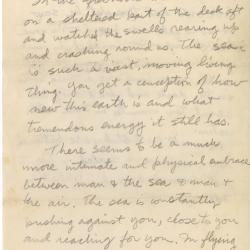 on a sheltered part of the deck aft
and watched the swells rearing up
and crashing round us. The sea
is such a vast, moving living
thing. You get a conception of how
new this earth is and what
tremendous energy it still has.
There seems to be a much
more intimate and physical embrace
between man & the sea & man &
the air. The sea is constantly
pushing against you, close to you
and reaching for you. In flying